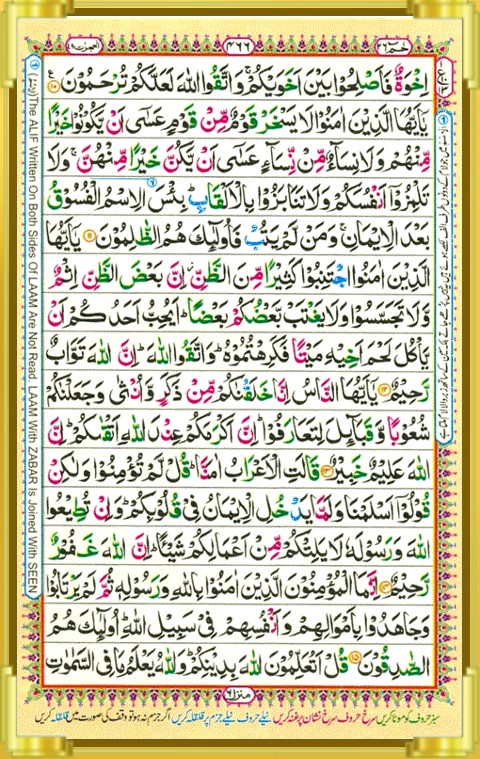 حٰمٓ ٢٦
٤٦٦
الحجرٰت ٤٩
اِخْوَةٌ فَاَصْلِحُوْا بَيْنَ اَخَوَيْكُمْ ۚ وَاتَّقُوا اللّٰهَ لَعَلَّكُمْ تُرْحَمُوْنَ ۝١٠
يٰٓاَيُّهَا الَّذِيْنَ اٰمَنُوْا لَا يَسْخَرْ قَوْمٌ مِّنْ قَوْمٍ عَسٰٓى اَنْ يَّكُوْنُوْا خَيْرًا
مِّنْهُمْ وَلَا نِسَآءٌ مِّنْ نِّسَآءٍ عَسٰٓى اَنْ يَّكُنَّ خَيْرًا مِّنْهُنَّ ۚ وَلَا
تَلْمِزُوْٓا اَنْفُسَكُمْ وَلَا تَنَابَزُوْا بِالْاَلْقَابِ ؕ بِئْسَ الِاسْمُ الْفُسُوْقُ
بَعْدَ الْاِيْمَانِ ۚ وَمَنْ لَّمْ يَتُبْ فَاُولٰٓئِكَ هُمُ الظّٰلِمُوْنَ ۝١١ يٰٓاَيُّهَا
الَّذِيْنَ اٰمَنُوا اجْتَنِبُوْا كَثِيْرًا مِّنَ الظَّنِّ ؗ اِنَّ بَعْضَ الظَّنِّ اِثْمٌ
وَّلَا تَجَسَّسُوْا وَلَا يَغْتَبْ بَّعْضُكُمْ بَعْضًا ؕ اَيُحِبُّ اَحَدُكُمْ اَنْ
يَّاْكُلَ لَحْمَ اَخِيْهِ مَيْتًا فَكَرِهْتُمُوْهُ ؕ وَاتَّقُوا اللّٰهَ ؕ اِنَّ اللّٰهَ تَوَّابٌ
رَّحِيْمٌ ۝١٢ يٰٓاَيُّهَا النَّاسُ اِنَّا خَلَقْنٰكُمْ مِّنْ ذَكَرٍ وَّاُنْثٰى وَجَعَلْنٰكُمْ
شُعُوْبًا وَّقَبَآئِلَ لِتَعَارَفُوْا ؕ اِنَّ اَكْرَمَكُمْ عِنْدَ اللّٰهِ اَتْقٰىكُمْ ؕ اِنَّ
اللّٰهَ عَلِيْمٌ خَبِيْرٌ ۝١٣ قَالَتِ الْاَعْرَابُ اٰمَنَّا ؕ قُلْ لَّمْ تُؤْمِنُوْا وَلٰكِنْ
قُوْلُوْٓا اَسْلَمْنَا وَلَمَّا يَدْخُلِ الْاِيْمَانُ فِيْ قُلُوْبِكُمْ ؕ وَاِنْ تُطِيْعُوا
اللّٰهَ وَرَسُوْلَهٗ لَا يَلِتْكُمْ مِّنْ اَعْمَالِكُمْ شَيْـًٔا ؕ اِنَّ اللّٰهَ غَفُوْرٌ
رَّحِيْمٌ ۝١٤ اِنَّمَا الْمُؤْمِنُوْنَ الَّذِيْنَ اٰمَنُوْا بِاللّٰهِ وَرَسُوْلِهٖ ثُمَّ لَمْ يَرْتَابُوْا
وَجَاهَدُوْا بِاَمْوَالِهِمْ وَاَنْفُسِهِمْ فِيْ سَبِيْلِ اللّٰهِ ؕ اُولٰٓئِكَ هُمُ
الصّٰدِقُوْنَ ۝١٥ قُلْ اَتُعَلِّمُوْنَ اللّٰهَ بِدِيْنِكُمْ ؕ وَاللّٰهُ يَعْلَمُ مَا فِى السَّمٰوٰتِ
منزل ٦
The ALIF Written On Both Sides Of LAAM Are Not Read. LAAM With ZABAR Is Joined With SEEN
سبز حروف کو موٹا کریں سرخ حروف سرخ نشان پر غنہ کریں نیلے حروف نیلے جزم پر قلقلہ کریں اگر جزم نہ ہو تو وقف کی صورت میں قلقلہ کریں